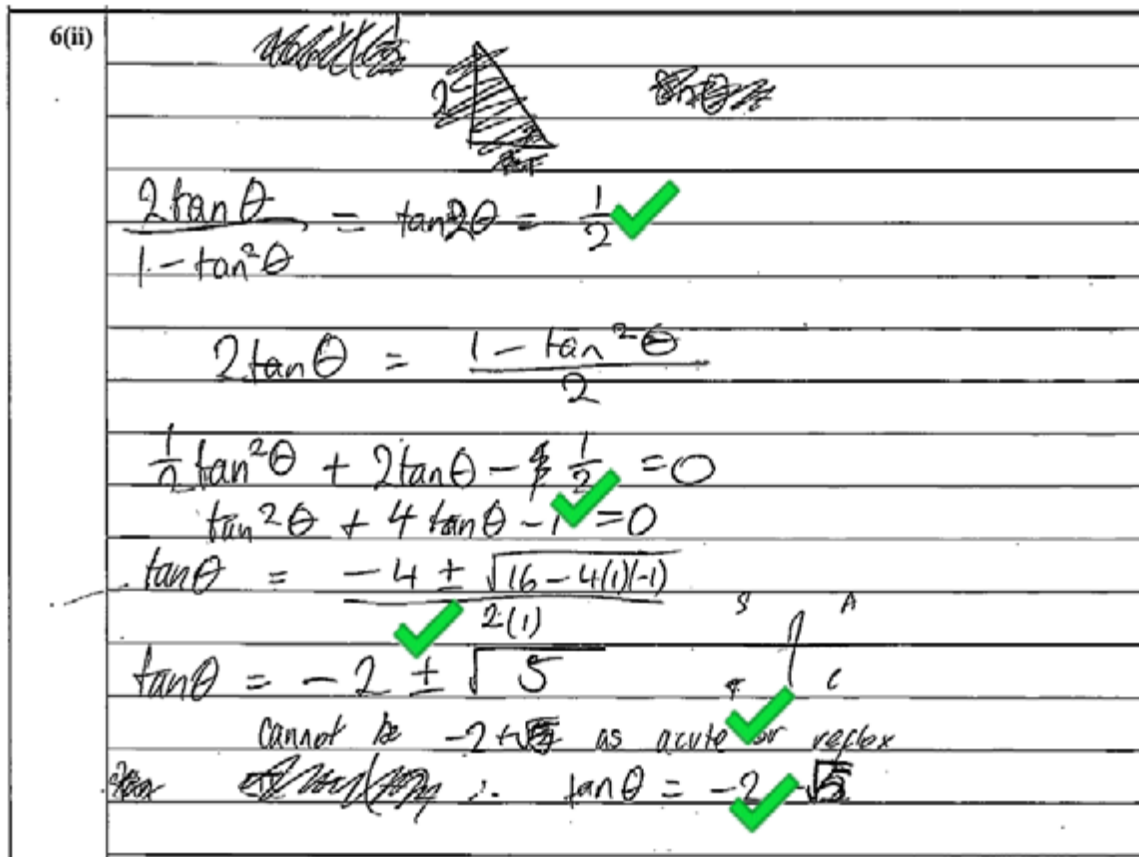 6(ii)
2
2tanθ / 1 - tan²θ = tan2θ = 1/2
2tanθ = 1 - tan²θ / 2
1/2 tan²θ + 2tanθ - 1/2 = 0
tan²θ + 4tanθ - 1 = 0
tanθ = -4 ± √(16 - 4(1)(-1)) / 2(1)
S A
tanθ = -2 ± √5
T C
cannot be -2+√5 as acute or reflex
∴ tanθ = -2 -√5